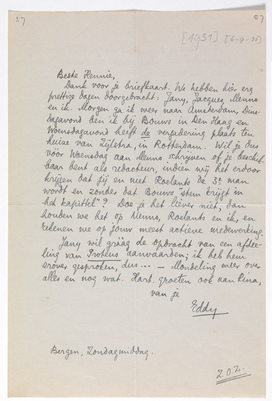 37
87
[1931] (26-9-31)
Beste Hennie,
Dank voor je briefkaart. We hebben hier erg
prettige dagen doorgebracht: Jany, Jacques, Menno
en ik. Morgen ga ik weer naar Amsterdam, Dins-
dagavond ben ik bij Bouws in Den Haag en
Woensdagavond heeft de vergadering plaats ten
huize van Zijlstra, in Rotterdam. Wil je dus
vóór Woensdag aan Menno schrijven of je beschik-
baar bent als redacteur, indien wij het ervoor
krijgen dat jij en niet Roelants de 3e man
wordt en zonder dat Bouws stem krijgt in
het kapittel"? Doe je het liever niet, dan
houden we het op Menno, Roelants en ik, en
rekenen we op jouw meest actieve medewerking.
Jany wil graag de opdracht van een afdee-
ling van Prothese aanvaarden; ik heb hem
erover gesproken, dus... — Mondeling meer over
alles en nog wat. Hart. groeten ook aan Rina,
van je
Eddy
Bergen, Zondagmiddag.
Z.O.Z.